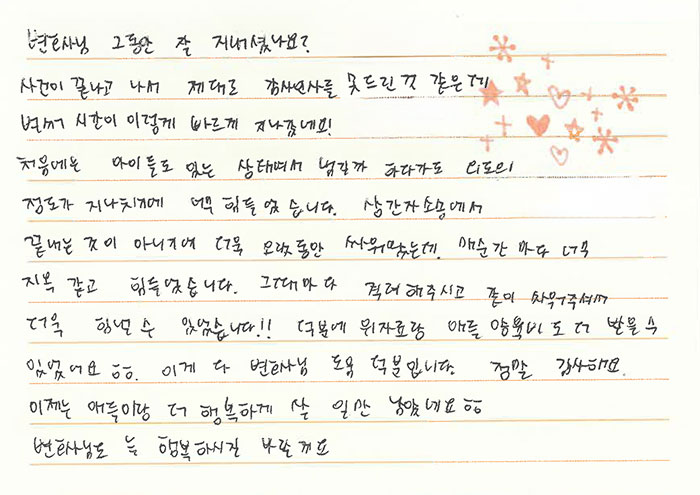 변호사님 그동안 잘 지내셨나요?
사건이 끝나고 나서 제대로 감사인사를 못드린것 같은데
벌써 시간이 이렇게 빠르게 지나갔네요!
처음에는 아이들도 있는 상태여서 넘길까 하다가도 외도의
정도가 지나치기에 너무 힘들었습니다. 상간자소송에서
끝내는 것이 아니기에 더욱 오랫동안 싸워왔는데. 매순간 마다 너무
지옥 같고 힘들었습니다. 그때마다 격려해주시고 같이 싸워주셔서
더욱 힘낼 수 있었습니다!! 덕분에 위자료랑 애들 양육비도 더 받을수
있었어요 ㅎㅎ. 이게 다 변호사님 도움 덕분입니다. 정말 감사해요.
이제는 애들이랑 더 행복하게 살 일만 남았네요 ㅎㅎ
변호사님도 늘 행복하시길 바랄게요